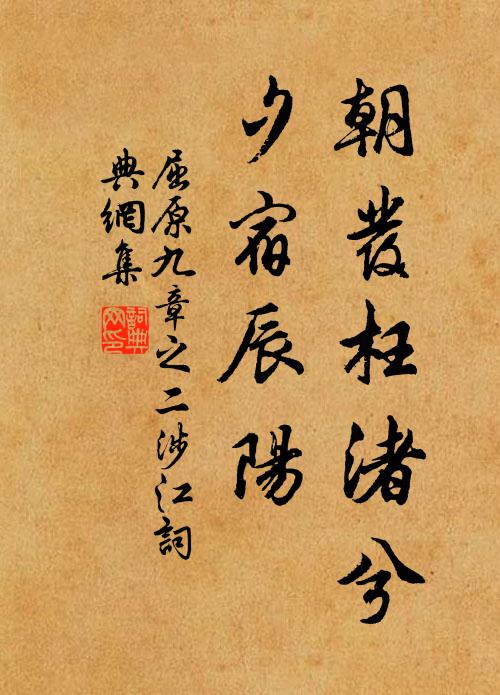 朝發枉渚兮
夕宿辰陽
屈原九章之二涉江詞
典網集
詞典
網印